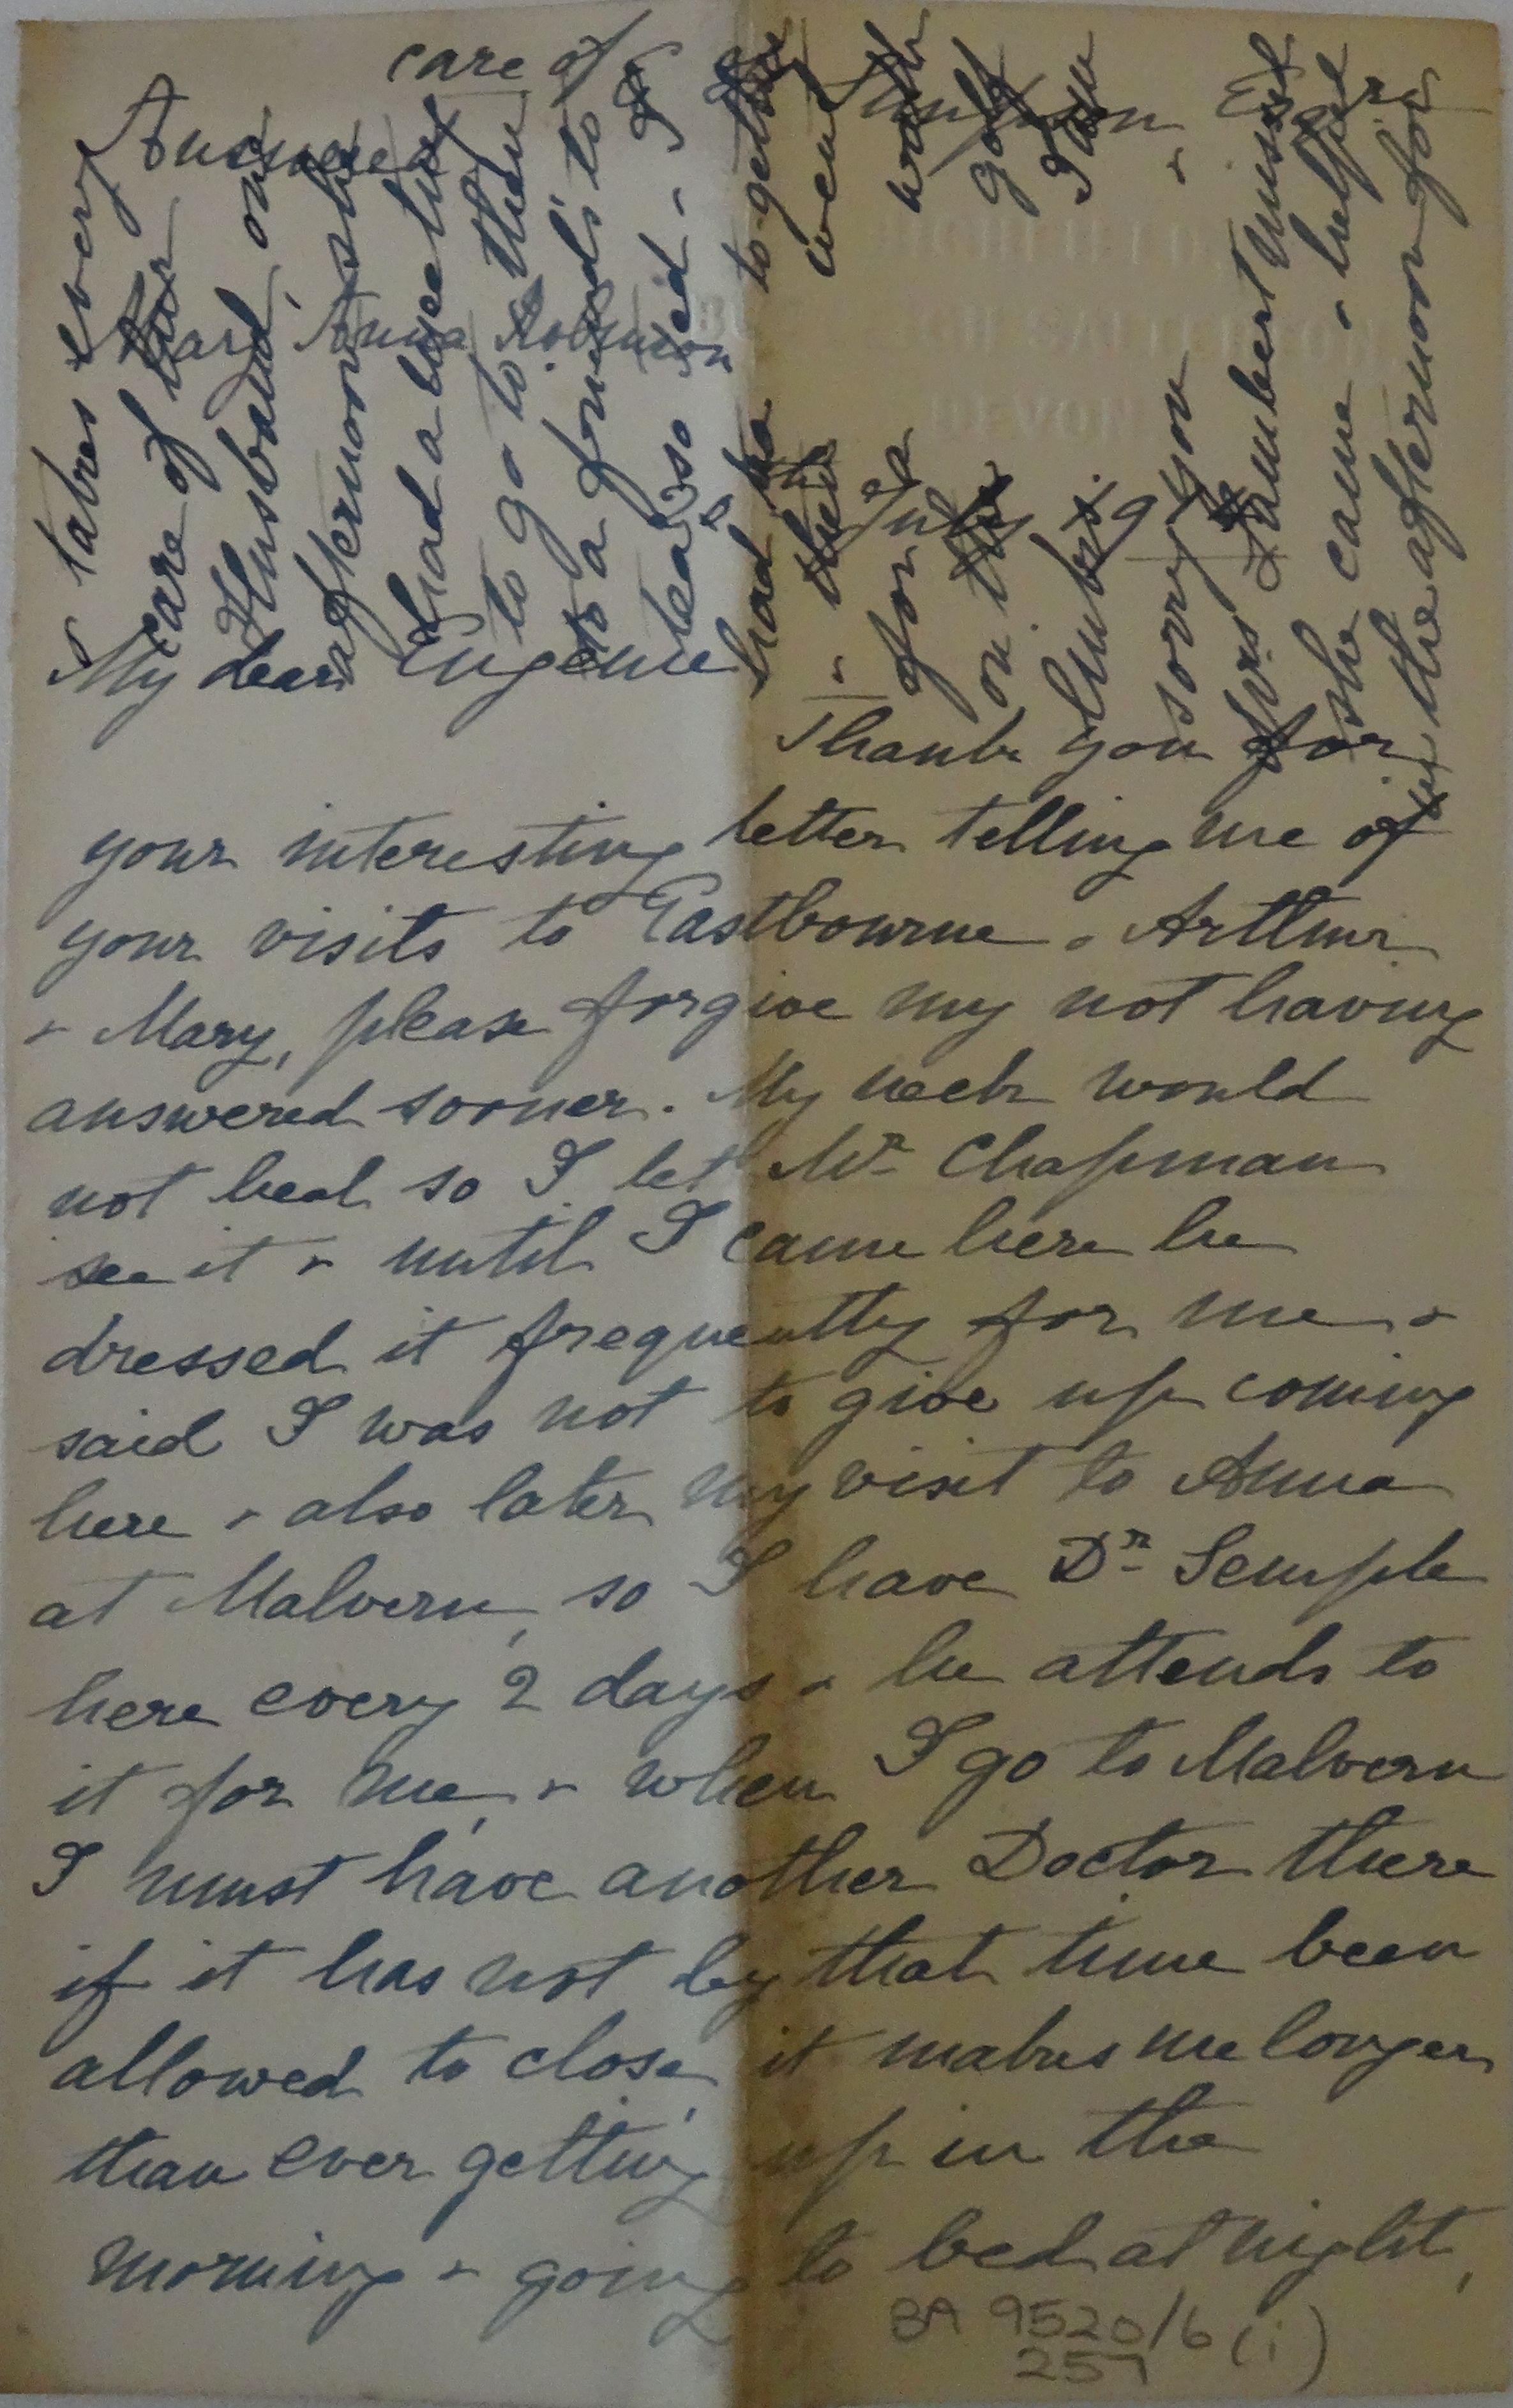 care of Esqre
Answered
Mary Anna Robinson
HIGHFIELD
BUDLEIGH SALTERTON
DEVON
July
My dear Eugenie
Thank you for
your interesting letter telling me of
your visits to Eastbourne . Arthur
+ Mary, please forgive my not having
answered sooner. My neck would
not heal so I let Mr Chapman
see it + until I came here he
dressed it frequently for me +
said I was not to give up coming
here + also later my visit to Anna
at Malvern, so I have Dr Semple
here every 2 days + he attends to
it for me, + when I go to Malvern
I must have another Doctor there
if it has not by that time been
allowed to close, it makes me longer
than ever getting up in the
morning + going to bed at night,
+ takes every
care of her
Husband, one
afternoon she
had a byce
to go to them
to a friend's to
tea, so I
had together
+ then went
for a walk
on the golf
links I am
sorry you
Mrs Lambert
she came + helped
in the afternoon for
BA 9520/6 (i)
257